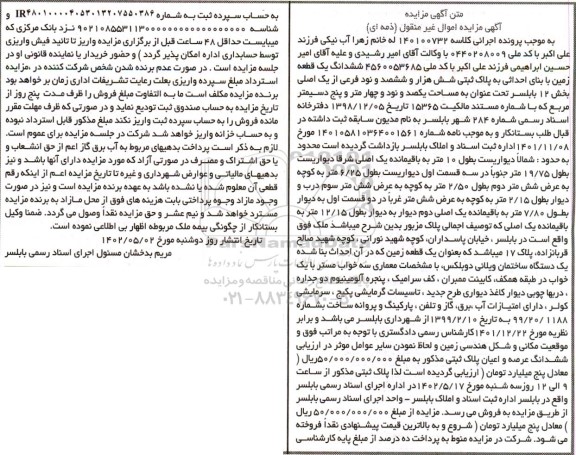 متن آگهی مزایده
آگهی مزایده اموال غیر منقول (ذمه ای)
به موجب پرونده اجرائی کلاسه ۱۴۰۱۰۰۷۳۲ له خانم زهرا آب نیکی فرزند
علی اکبر با کد ملی ۰۴۴۰۲۰۸۰۰۹ با وکالت آقای امیر رشیدی و علیه آقای امیر
حسین ابراهیمی فرزند علی اکبر با کد ملی ۴۵۶۰۰۵۳۶۸۵ ششدانگ یک قطعه
زمین با بنای احداثی به پلاک ثبتی شش هزار و ششصد و نود فرعی از یک اصلی
بخش ۱۲ بابلسر تحت عنوان به مساحت یکصد و نود و چهار متر و پنج دسیمتر
مربع که با شماره مستند مالکیت ۱۵۳۶۵ تاریخ ۱۳۹۸/۱۲/۰۵ دفترخانه
اسناد رسمی شماره ۲۸۴ شهر بابلسر به نام مدیون سابقه ثبت داشته در
قبال طلب بستانکار و به موجب نامه شماره ۱۴۰۱۰۵۸۱۰۳۶۴۰۰۱۵۶۱ مورخ
۱۴۰۱/۱۱/۰۸ اداره ثبت اسناد و املاک بابلسر بازداشت گردیده است محدود
به حدود : شمالا دیواریست بطول ۱۰ متر به باقیمانده یک اصلی شرقا دیواریست
بطول ۱۹/۷۵ متر جنوبا در سه قسمت اول دیواریست بطول ۶/۲۵ متر به کوچه
به عرض شش متر دوم بطول ۲/۵۰ متر به کوچه به عرض شش متر سوم درب و
دیوار بطول ۲/۱۵ متر به کوچه به عرض شش متر غربا در دو قسمت اول به دیوار
بطول ۷/۸۰ متر به باقیمانده یک اصلی دوم دیوار به دیوار بطول ۱۲/۱۵ متر به
باقیمانده یک اصلی که توصیف اجمالی پلاک مزبور بدین شرح میباشد ملک فوق
واقع است در بابلسر ، خیابان پاسداران، کوچه شهید نورانی ، کوچه شهید صالح
قربانزاده، پلاک ۱۷ میباشد که بعنوان یک قطعه زمین که در آن احداث بنا شده
یک دستگاه ساختمان ویلائی دوبلکس، با مشخصات معماری سه خواب مستر با یک
خواب در طبقه همکف، کابینت ممبران ، کف سرامیک ، پنجره آلومینیوم دو جداره
، دربها چوبی دیوار کاغذ دیواری طرح جدید ، تاسیسات گرمایشی پکیج ، سرمایشی
کولر ، دارای امتیازات آب ،برق، گاز و تلفن ، پارکینگ و پروانه ساخت بشماره
۹۹/۲۰/ ۱۱۸۸ به تاریخ ۱۳۹۹/۲/۱۰از شهرداری بابلسر می باشد و برابر
نظریه مورخ ۱۴۰۱/۱۲/۲۲ کارشناس رسمی دادگستری با توجه به مراتب فوق و
موقعیت مکانی و شکل هندسی زمین و لحاظ نمودن سایر عوامل موثر در ارزیابی
ششدانگ عرصه و اعیان پلاک ثبتی مذکور به مبلغ ۵۰/۰۰۰/۰۰۰/۰۰۰ریال (
معادل پنج میلیارد تومان ( ارزیابی گردیده است لذا پلاک ثبتی مذکور از ساعت
۹ الی ۱۲ روزسه شنبه مورخ ۱۴۰۲/۵/۱۷ در اداره اجرای اسناد رسمی بابلسر
واقع در بابلسر اداره ثبت اسناد و املاک بابلسر - واحد اجرای اسناد رسمی بابلسر
از طریق مزایده به فروش می رسد. مزایده از مبلغ ۵۰/۰۰۰/۰۰۰/۰۰۰ ریال
) معادل پنج میلیارد تومان ( شروع و به بالاترین قیمت پیشنهادی نقداً فروخته
می شود. شرکت در مزایده منوط به پرداخت ده درصد از مبلغ پایه کارشناسی
به حساب سپرده ثبت به شماره IR۴۸۰۱۰۰۰۰۴۰۵۳۰۱۳۲۰۷۵۵۰۳۸۶ و
شناسه ۹۰۲۱۰۸۵۵۳۱۱۳۰۰۰۰۰۰۰۰۰۰۰۰۰۰۰ نزد بانک مرکزی که
میبایست حداقل ۴۸ ساعت قبل از برگزاری مزایده واریز تا تائید فیش واریزی
توسط حسابداری اداره امکان پذیر گردد ) و حضور خریدار یا نماینده قانونی او در
جلسه مزایده است . در صورت عدم برنده شدن شخص شرکت کننده در ،مزایده
استرداد مبلغ سپرده واریزی بعلت رعایت تشریفات اداری زمان بر خواهد بود
برنده مزایده مکلف است ما به التفاوت مبلغ فروش را ظرف مدت پنج روز از
تاریخ مزایده به حساب صندوق ثبت تودیع نماید و در صورتی که ظرف مهلت مقرر
مانده فروش را به حساب سپرده ثبت واریز نکند مبلغ مذکور قابل استرداد نبوده
و به حساب خزانه واریز خواهد شد شرکت در جلسه مزایده برای عموم است.
لازم به ذکر است پرداخت بدهیهای مربوط به آب برق گاز اعم از حق انشعاب و
یا حق اشتراک و مصرف در صورتی آزاد که مورد مزایده دارای آنها باشد و نیز
بدهیهای مالیاتی و عوارض شهرداری و غیره تا تاریخ مزایده اعم از اینکه رقم
قطعی آن معلوم شده یا نشده باشد به عهده برنده مزایده است و نیز در صورت
وجود مازاد وجوه پرداختی بابت هزینه های فوق از محل مازاد به برنده مزایده
مسترد خواهد شد و نیم عشر و حق مزایده نقداً وصول می گردد. ضمنا وکیل
بستانکار از چگونگی بیمه ملک مربوطه اظهار بی اطلاعی نموده است.
تاریخ انتشار روز دوشنبه مورخ ۱۴۰۲/۰۵/۰۲
مریم بدخشان مسئول اجرای اسناد رسمی بابلسر